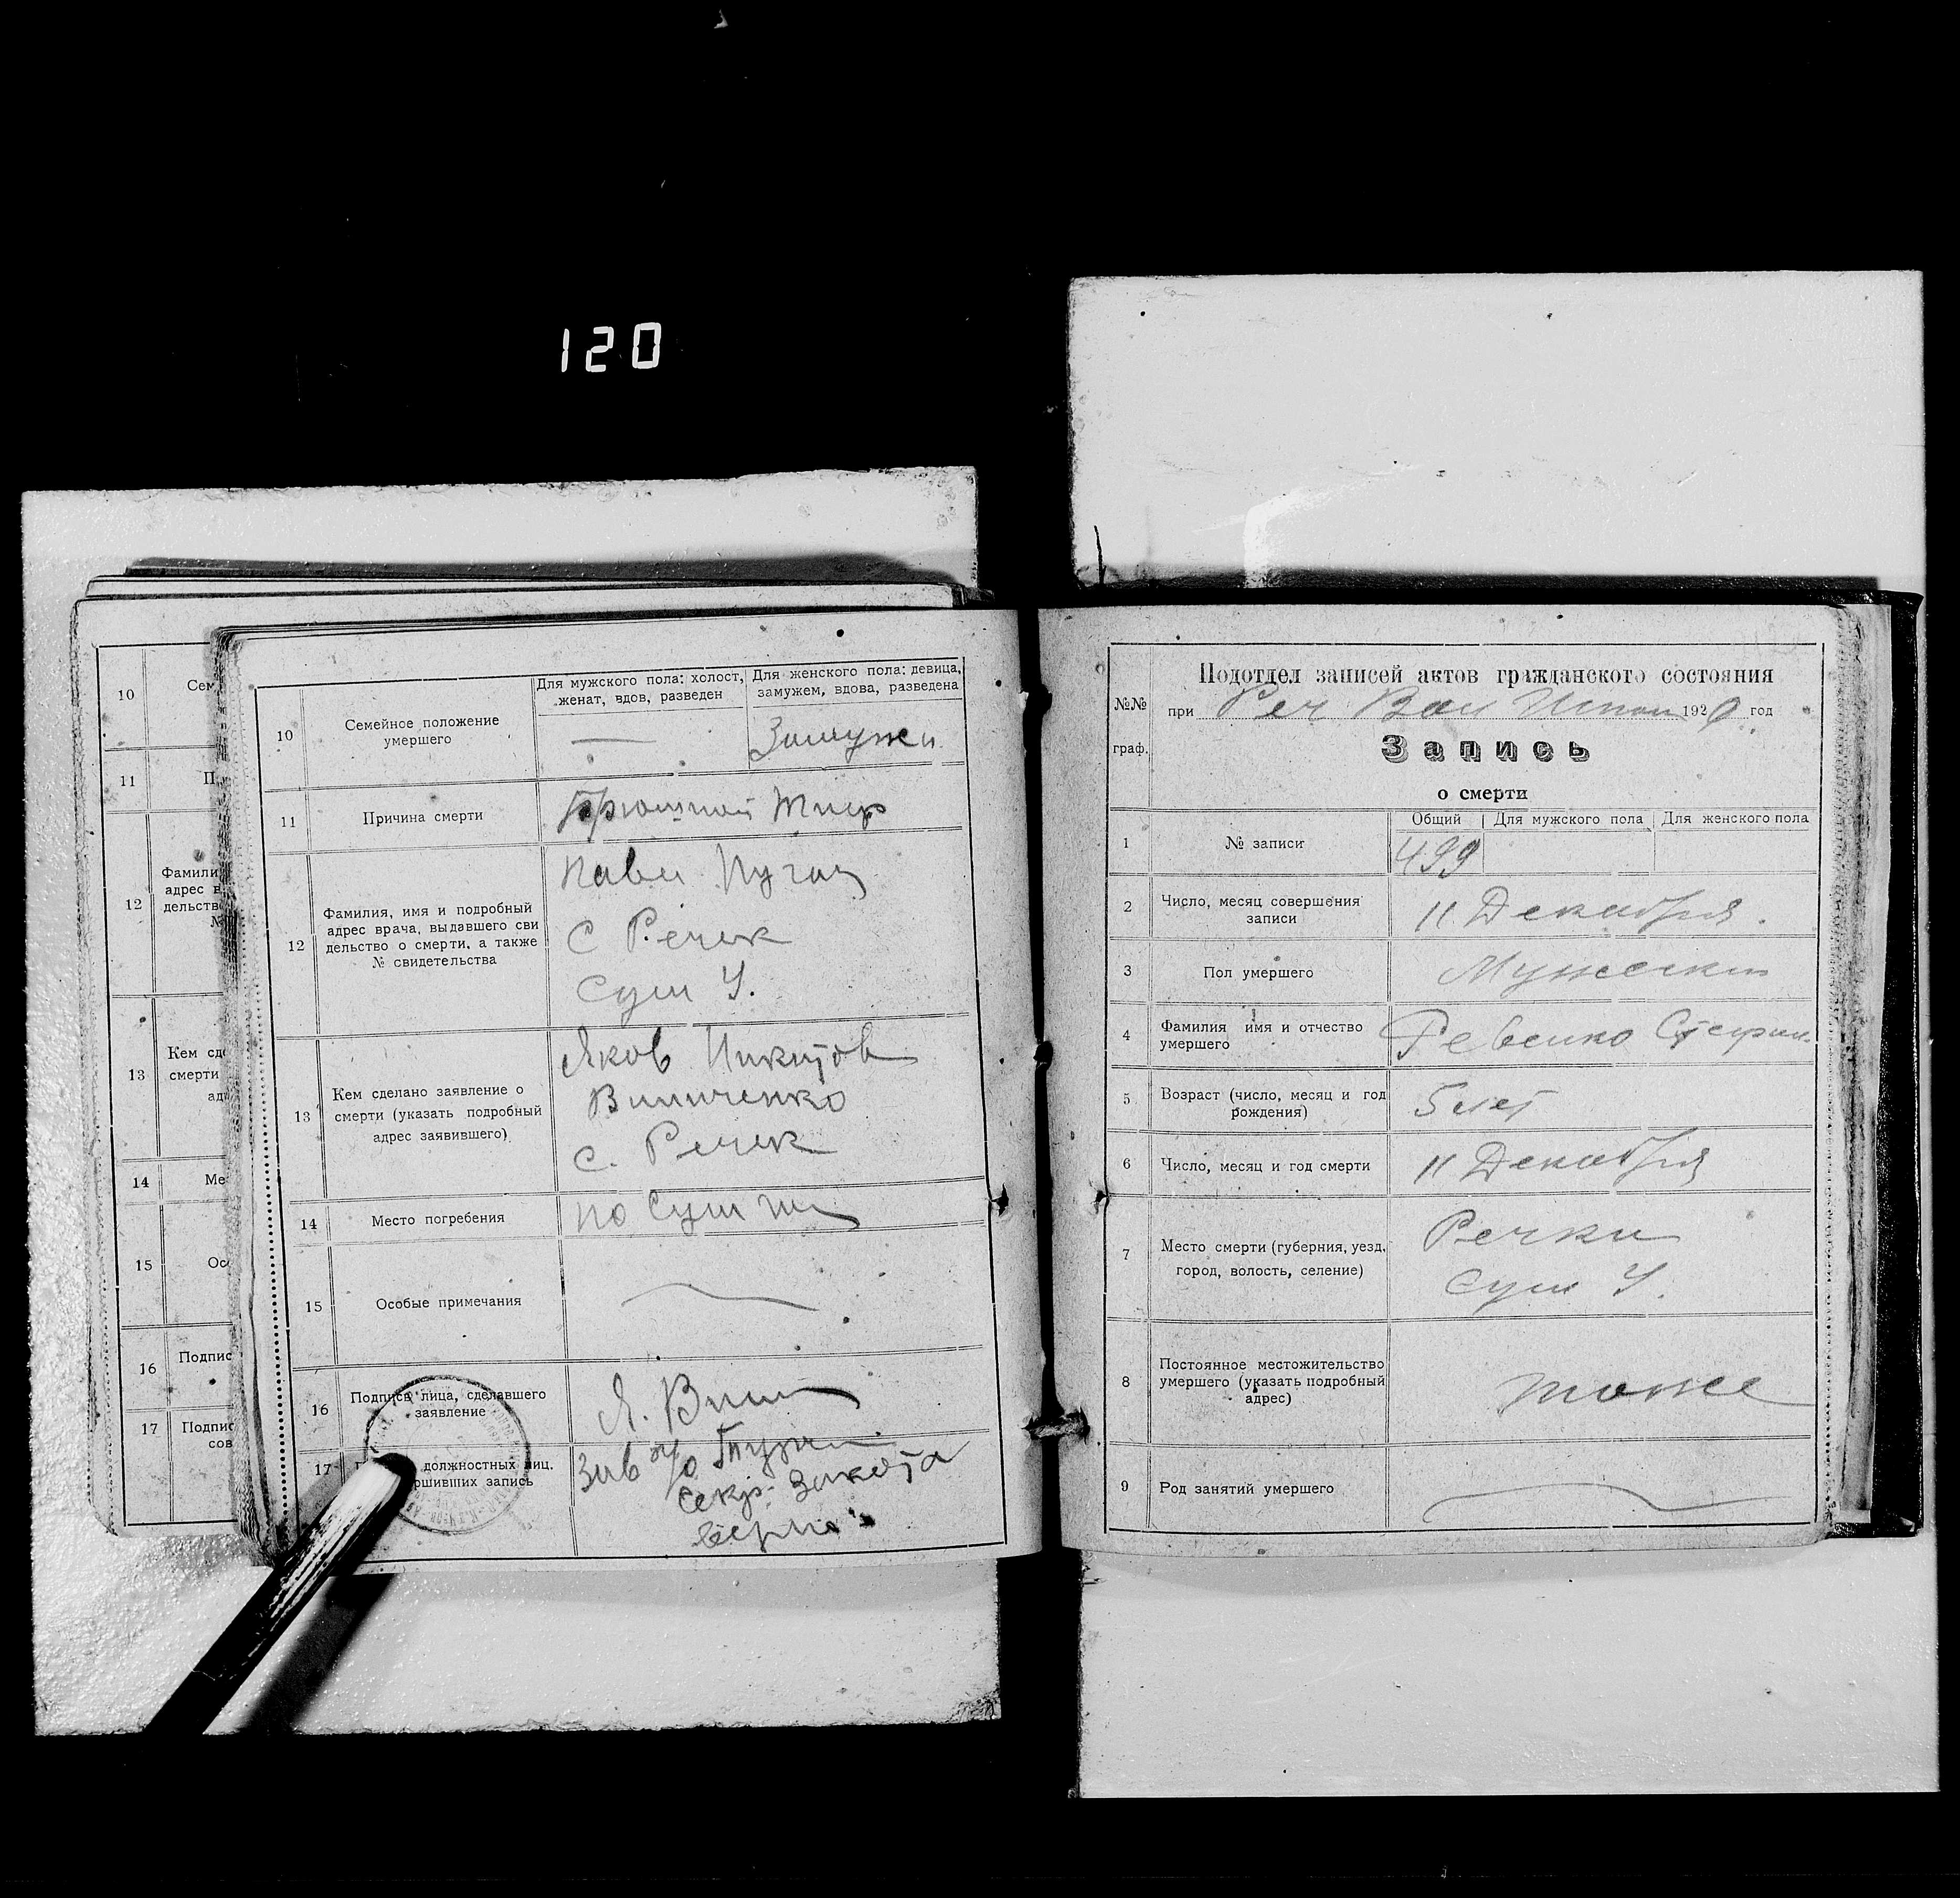 120
10
Сем
11
П
12
Фамили
адрес в
дельств
№
13
Кем сд
смерти
ад
14
Ме
15
Ос
16
Подпис
17
Подпис
сов
10
Семейное положение
умершего
Для мужского пола: холост,
женат, вдов, разведен
Для женского пола: девица,
замужем, вдова, разведена
—
Замужем
11
Причина смерти
Брюшной Тиф
12
Фамилия, имя и подробный
адрес врача, выдавшего сви
дельство о смерти, а также
№ свидетельства
Павел
С Речек
Сум У.
13
Кем сделано заявление о
смерти (указать подробный
адрес заявившего)
Яков Никитов
Винниченко
с. Речек
14
Место погребения
15
Особые примечания
16
Подпись лица, сделавшего
заявление
Я. Винн
17
должностных лиц,
ршивших запись
Зав
Секр.
верно
Подотдел записей актов гражданского состояния
№№
граф.
при Реч Вол Испол 1920 год
Запись
о смерти
1
№ записи
Общий
Для мужского пола
Для женского пола
499
2
Число, месяц совершения
записи
11 Декабря.
3
Пол умершего
Мужеский
4
Фамилия имя и отчество
умершего
Ревенко Стефан
5
Возраст (число, месяц и год
рождения)
5 лет
6
Число, месяц и год смерти
11 Декабря
7
Место смерти (губерния, уезд,
город, волость, селение)
Речки
Сум У.
8
Постоянное местожительство
умершего (указать подробный
адрес)
тоже
9
Род занятий умершего